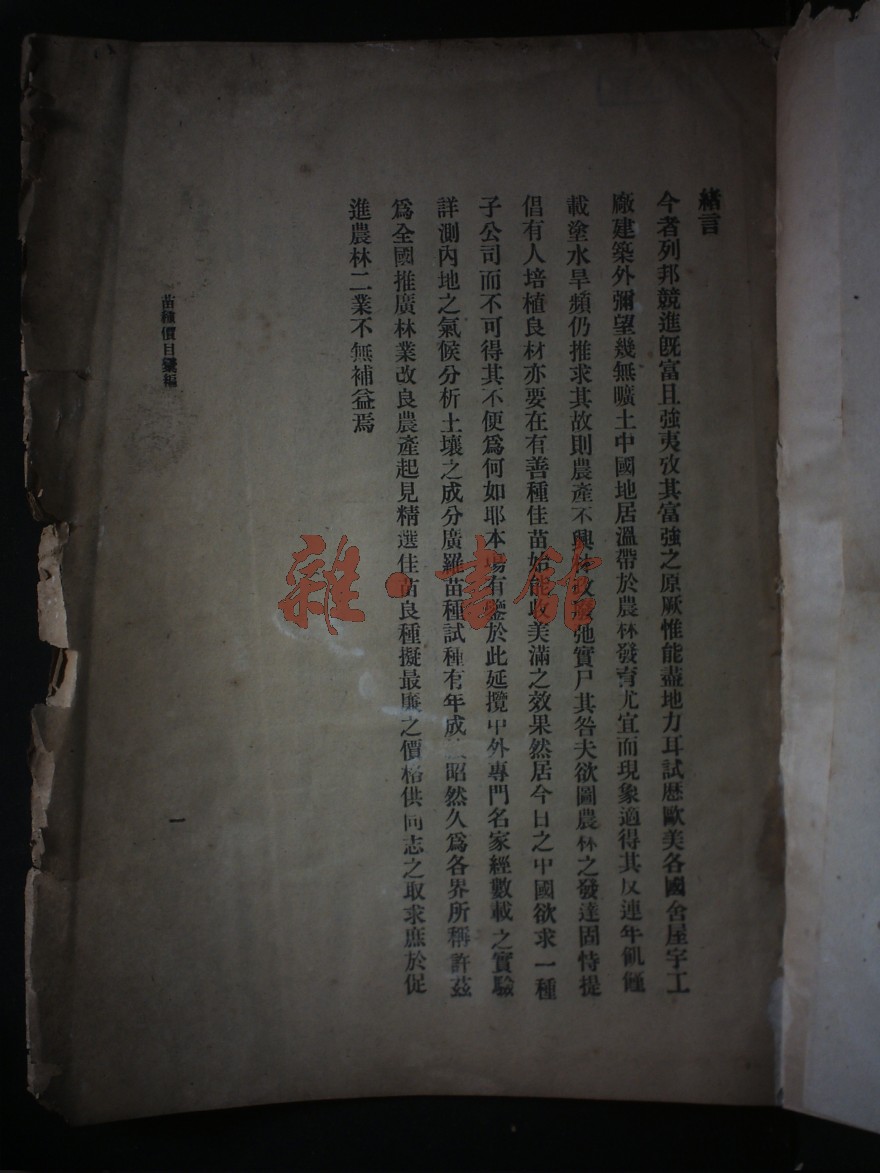 緒言
今者列邦競進既富且強夷攷其富強之原厥惟能盡地力耳試歷歐美各國舍屋宇工
廠建築外彌望幾無曠土中國地居溫帶於農林發育尤宜而現象適得其反連年飢饉
載塗水旱頻仍推求其故則農產不興林政廢弛實尸其咎夫欲圖農林之發達固恃提
倡有人培植良材亦要在有善種佳苗始能收美滿之效果然居今日之中國欲求一種
子公司而不可得其不便爲何如耶本場有鑒於此延攬中外專門名家經數載之實驗
詳測內地之氣候分析土壤之成分廣羅苗種試種有年成昭然久爲各界所稱許茲
爲全國推廣林業改良農產起見精選佳苗良種擬最廉之價格供同志之取求庶於促
進農林二業不無補益焉
苗種價目彙編
一
雜·書館